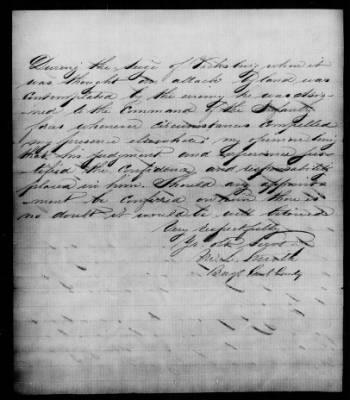 During the Siege of Vicksburg when it
was thought an attack by land was
contemplated by the enemy he was assig-
ned to the Command of the Infantry
whenever circumstances compelled
my presence elsewhere, my opinion being
that his judgment and experience jus-
tified the Confidence and responsibility
placed in him. Should any appoint-
ment be conferred on him there is
no doubt it would be well bestowed
Very respectfully
Yr Obt Servt
M. L. Smith
Brig Genl